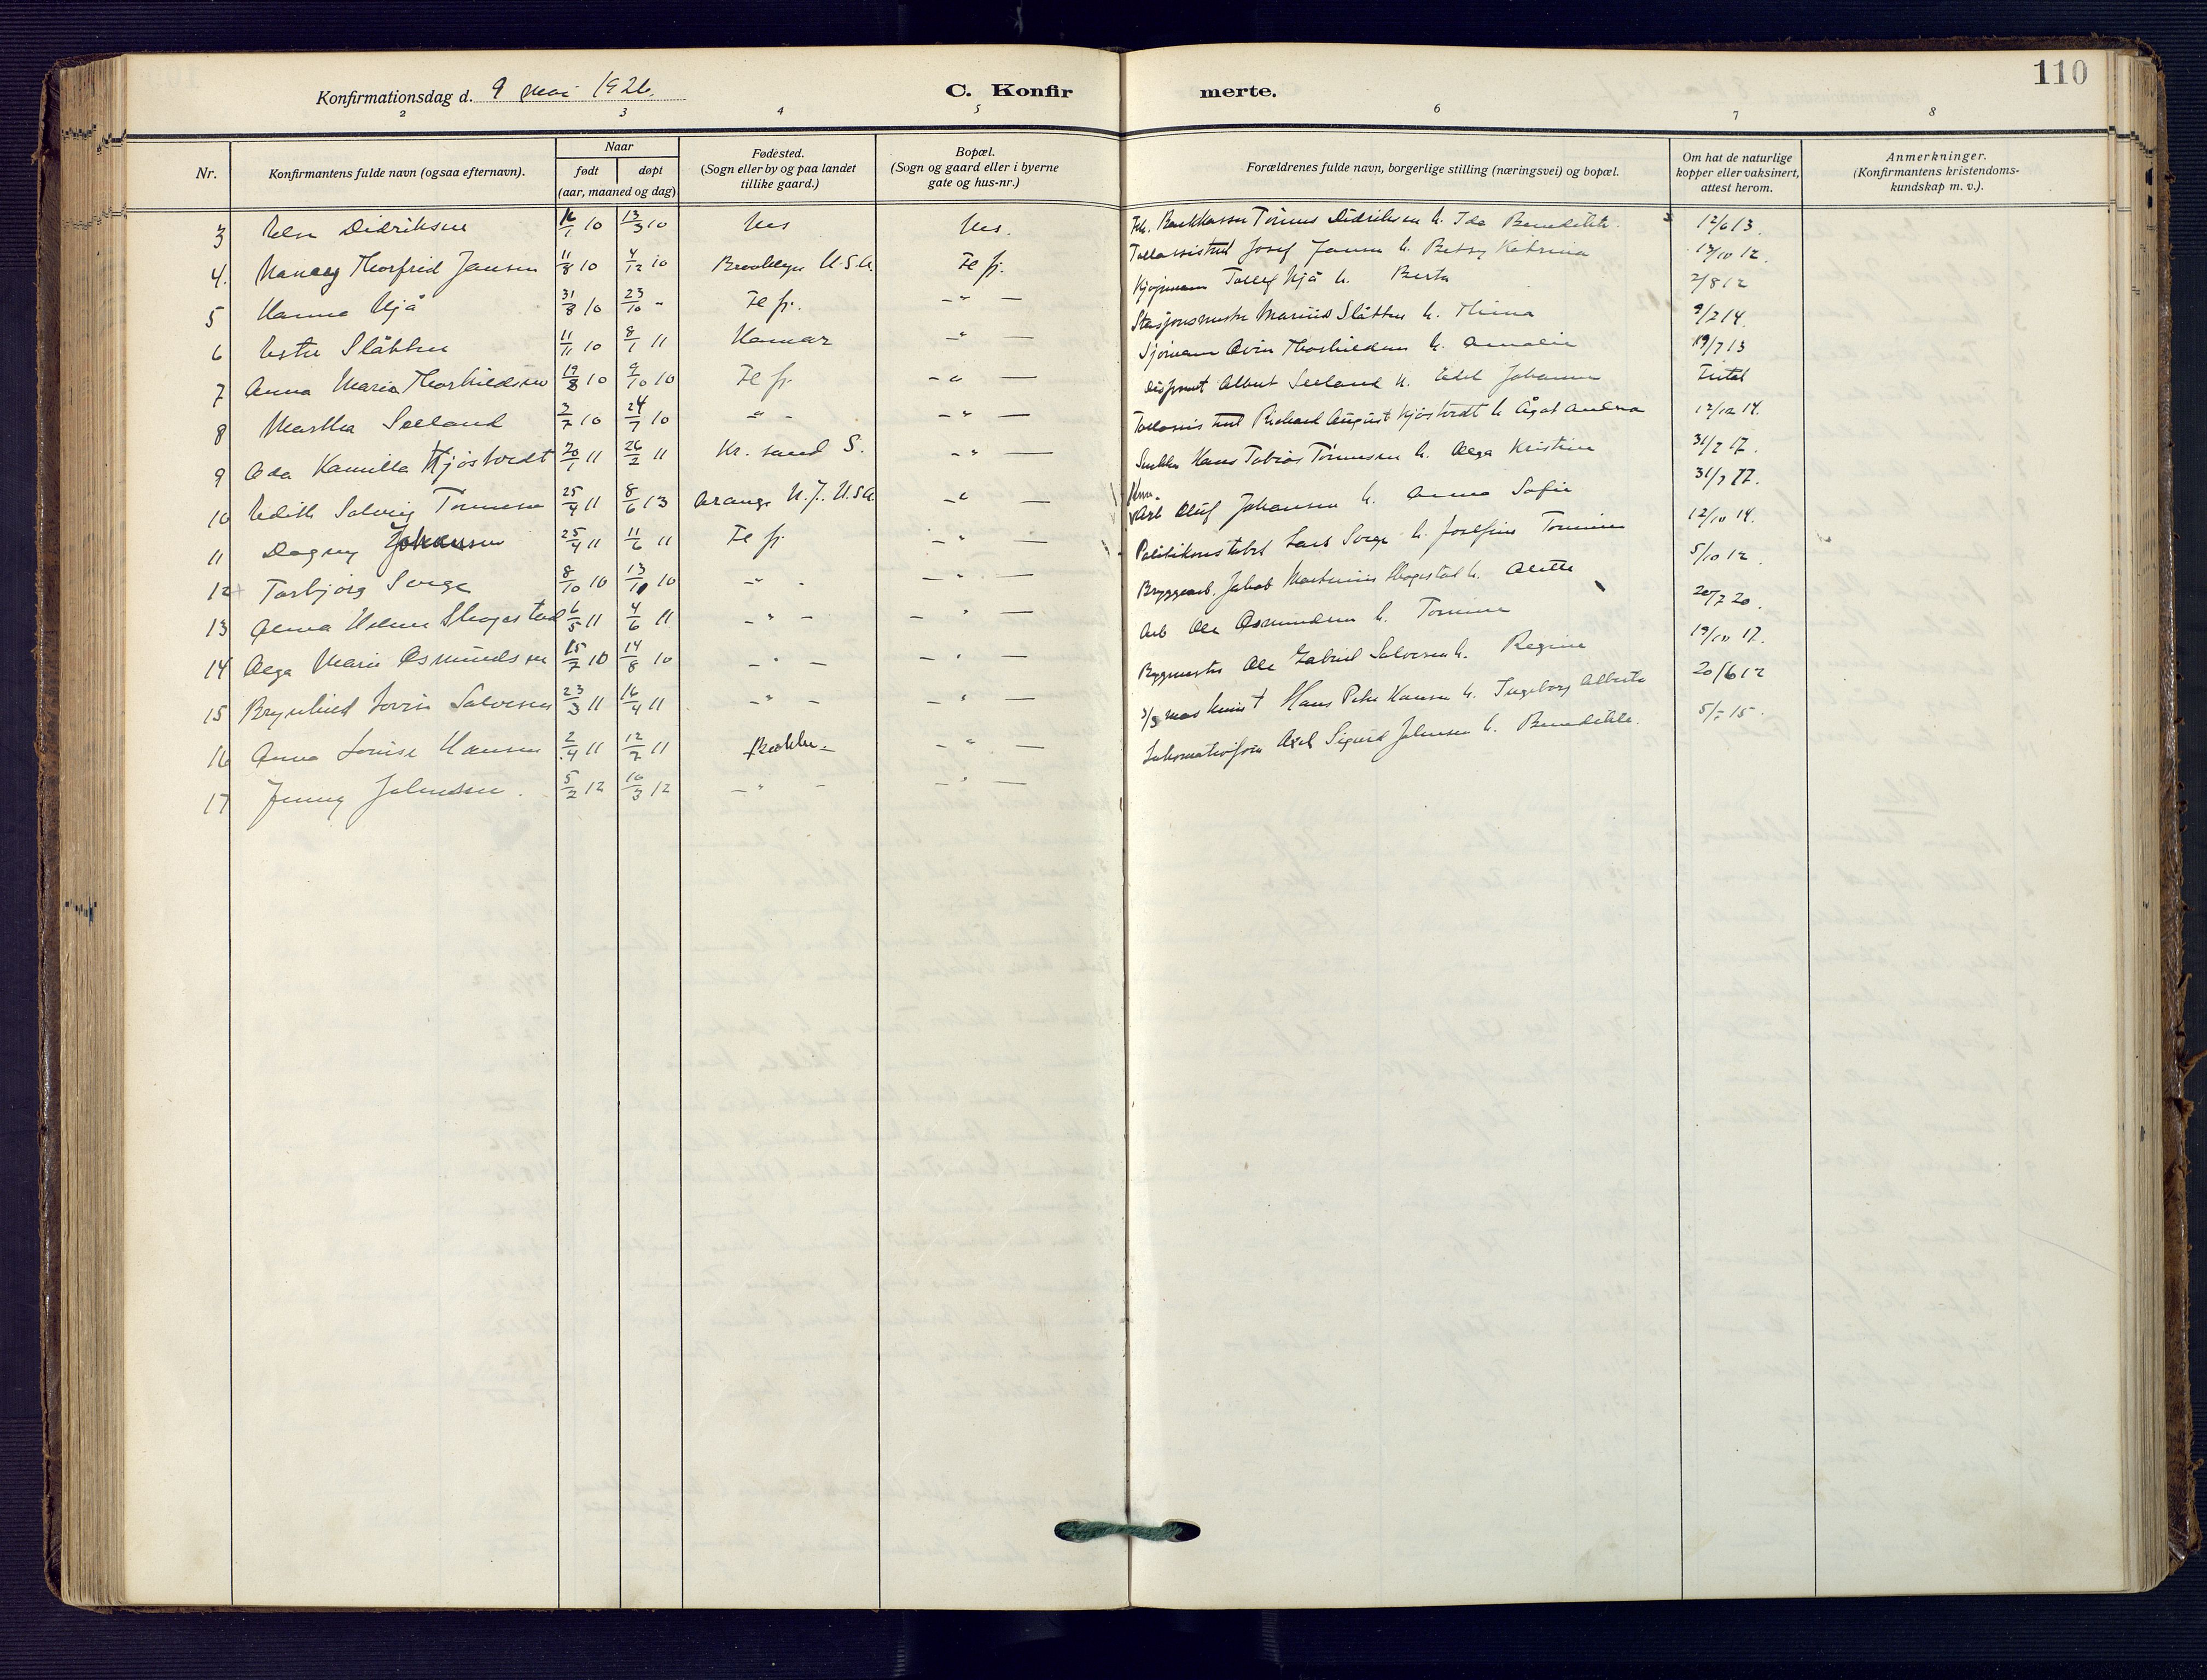 110
Konfirmationsdag d. 9 mai 1926. C. Konfir merte.
2 3 4 5 6 7 8
Nr. Konfirmantens fulde navn (ogsaa efternavn). Naar født døpt (aar, maaned og dag) Fødested. (Sogn eller by og paa landet tillike gaard.) Bopæl. (Sogn og gaard eller i byerne gate og hus-nr.) Forældrenes fulde navn, borgerlige stilling (næringsvei) og bopæl. Om hat de naturlige kopper eller vaksinert, attest herom. Anmerkninger. (Konfirmantens kristendoms-kundskap m. v.).
3 Else Didriksen 16/1 10 13/3 10 Nes Nes. Tønnes Didriksen h. Ida Benedikte. 12/6 13.
4. Nancy Thorfrid Jansen 11/8 10 4/12 10 Brooklyn U.S.A. Fl fj. Tollassistent Josef Jansen h. Betsy Katrina 13/10 12.
5 Hanna Njå 31/8 10 23/10 " Fl fj. -"- Kjøpmann Tollef Njå h. Berta 2/8 12
6 Ester Slåtten 11/11 10 8/1 11 Hamar -"- Stasjonsmester Marius Slåtten h. Thina 9/2 14.
7 Anna Maria Thorkildsen 19/8 10 9/10 10 Fl fj. -"- Sjømann Thorkildsen h. Amalie 19/7 13
8 Martha Seeland 3/7 10 24/7 10 "- -"- Disponent Albert Seeland h. Edel Johanne
9 Oda Kamilla Kjøstvedt 20/1 11 26/2 11 Kr. sand S. -"- Tollassistent Richard August Kjøstvedt h. 12/10 14.
10 Edith Solveig Tønnesen 25/4 11 8/6 13 Orange N.J. U.S.A. -"- Snekker Hans Tobias Tønnesen h. Olga Kristine 31/7 17.
11 Dagny Johansen 25/4 11 11/6 11 Fl fj -"- Arb Oluf Johansen h. Anna Sofie 31/7 17.
12 Torbjørg Svege 8/10 10 13/11 10 -"- -"- Politikonstabel Lars Svege h. Josefine Tomine 12/10 14.
13 Alma Helene Skogestad 6/5 11 4/6 11 -"- -"- Bryggearb. Jakob Martinius Skogestad h. Alette 5/10 12
14 Olga Marie Osmundsen 15/7 10 14/8 10 -"- -"- Arb Ole Osmundsen h. Tomine 20/7 20.
15 Brynhild Lovise Salvesen 23/3 11 16/4 11 -"- -"- Byggmester Ole Gabriel Salvesen h. Regine 19/10 17.
16 Anna Louise Hansen 2/4 11 12/7 11 -"- Hans Peter Hansen h. Ingeborg Alberte 20/6 12
17 Jenny Johnsen. 5/2 12 10/3 12 -"- -"- Lokomotivfører Axel Sigurd Johnsen h. Benedikte.